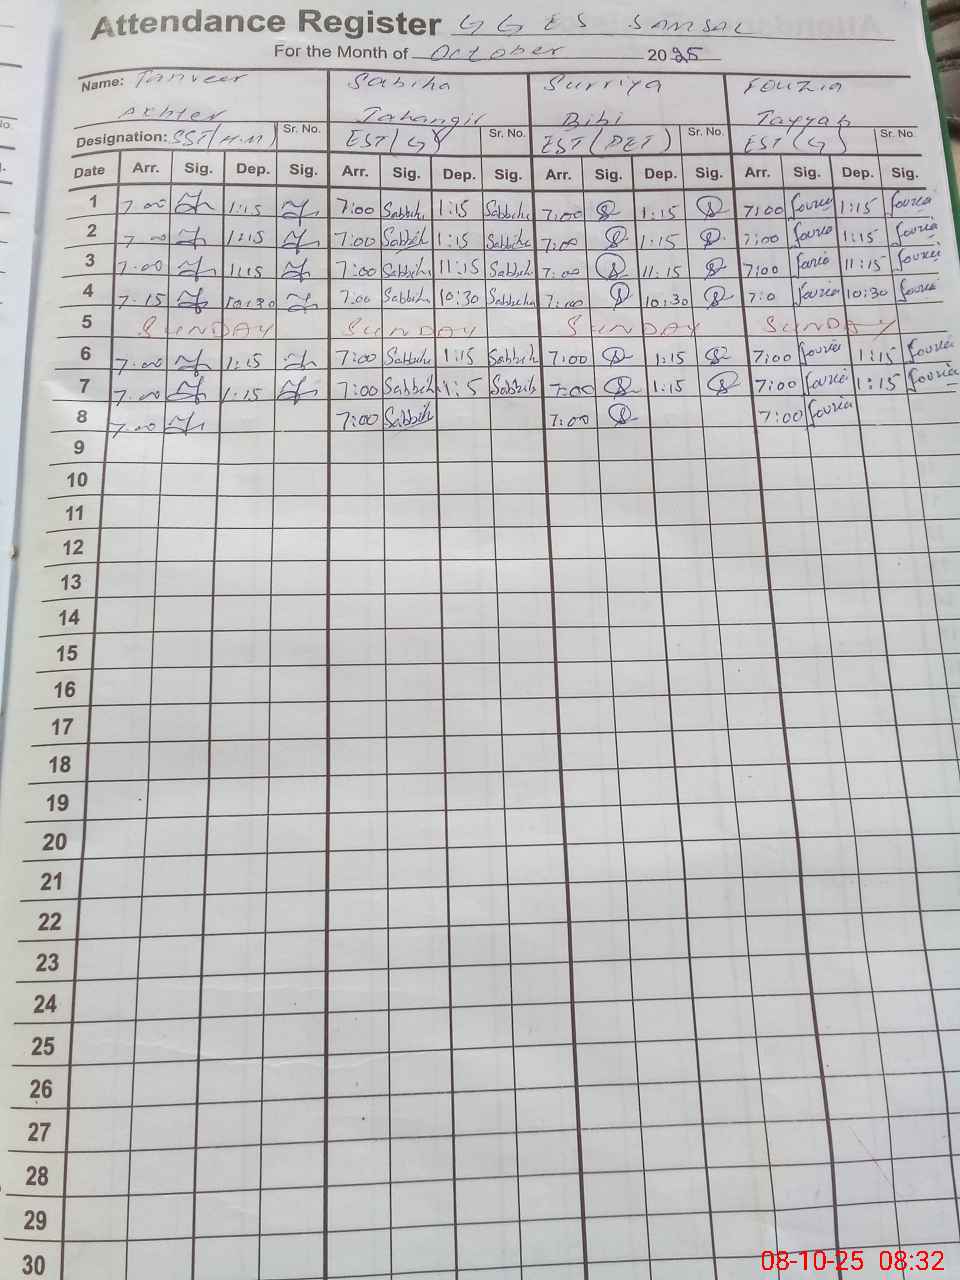 Attendance Register G G E S SANSAL
For the Month of October 2025
Name: Tanveer Sabiha Surriya Fouzia
Akhter Jahangir Bibi Tayyab
Designation: SST/H.M) Sr. No. EST(G) Sr. No. EST(PET) Sr. No. EST(G) Sr. No.
Date Arr. Sig. Dep. Sig. Arr. Sig. Dep. Sig. Arr. Sig. Dep. Sig. Arr. Sig. Dep. Sig.
1 7.00 1:15 7:00 Sabbih 1:15 Sabbih 7:00 1:15 7:00 fouzia 1:15 fouzia
2 7.00 1:15 7:00 Sabbih 1:15 Sabbih 7:00 1:15 7:00 fouzia 1:15 fouzia
3 7.00 11:15 7:00 Sabbih 11:15 Sabbih 7:00 11:15 7:00 fouzia 11:15 fouzia
4 7.15 10:30 7:00 Sabbih 10:30 Sabbih 7:00 10:30 7:0 fouzia 10:30 fouzia
5 SUNDAY SUNDAY SUNDAY SUNDAY
6 7.00 1:15 7:00 Sabbih 1:15 Sabbih 7:00 1:15 7:00 fouzia 1:15 fouzia
7 7.00 1:15 7:00 Sabbih 1:5 Sabbih 7:00 1.15 7:00 fouzia 1:15 fouzia
8 7.00 7:00 Sabbih 7:00 7:00 fouzia
9
10
11
12
13
14
15
16
17
18
19
20
21
22
23
24
25
26
27
28
29
30
08-10-25 08:32